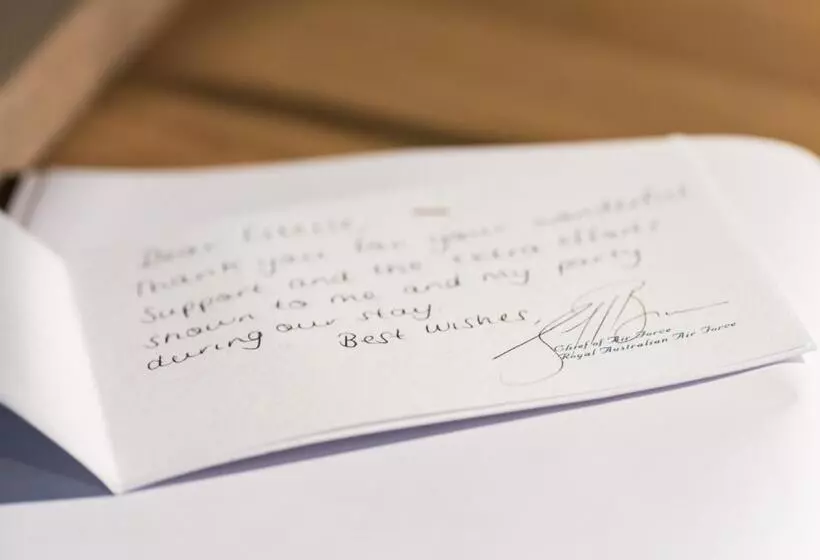 Dear
Thank you for your wonderful
support and the extra efforts
shown to me and my party
during our stay.
Best Wishes,
Chief of Air Force
Royal Australian Air Force